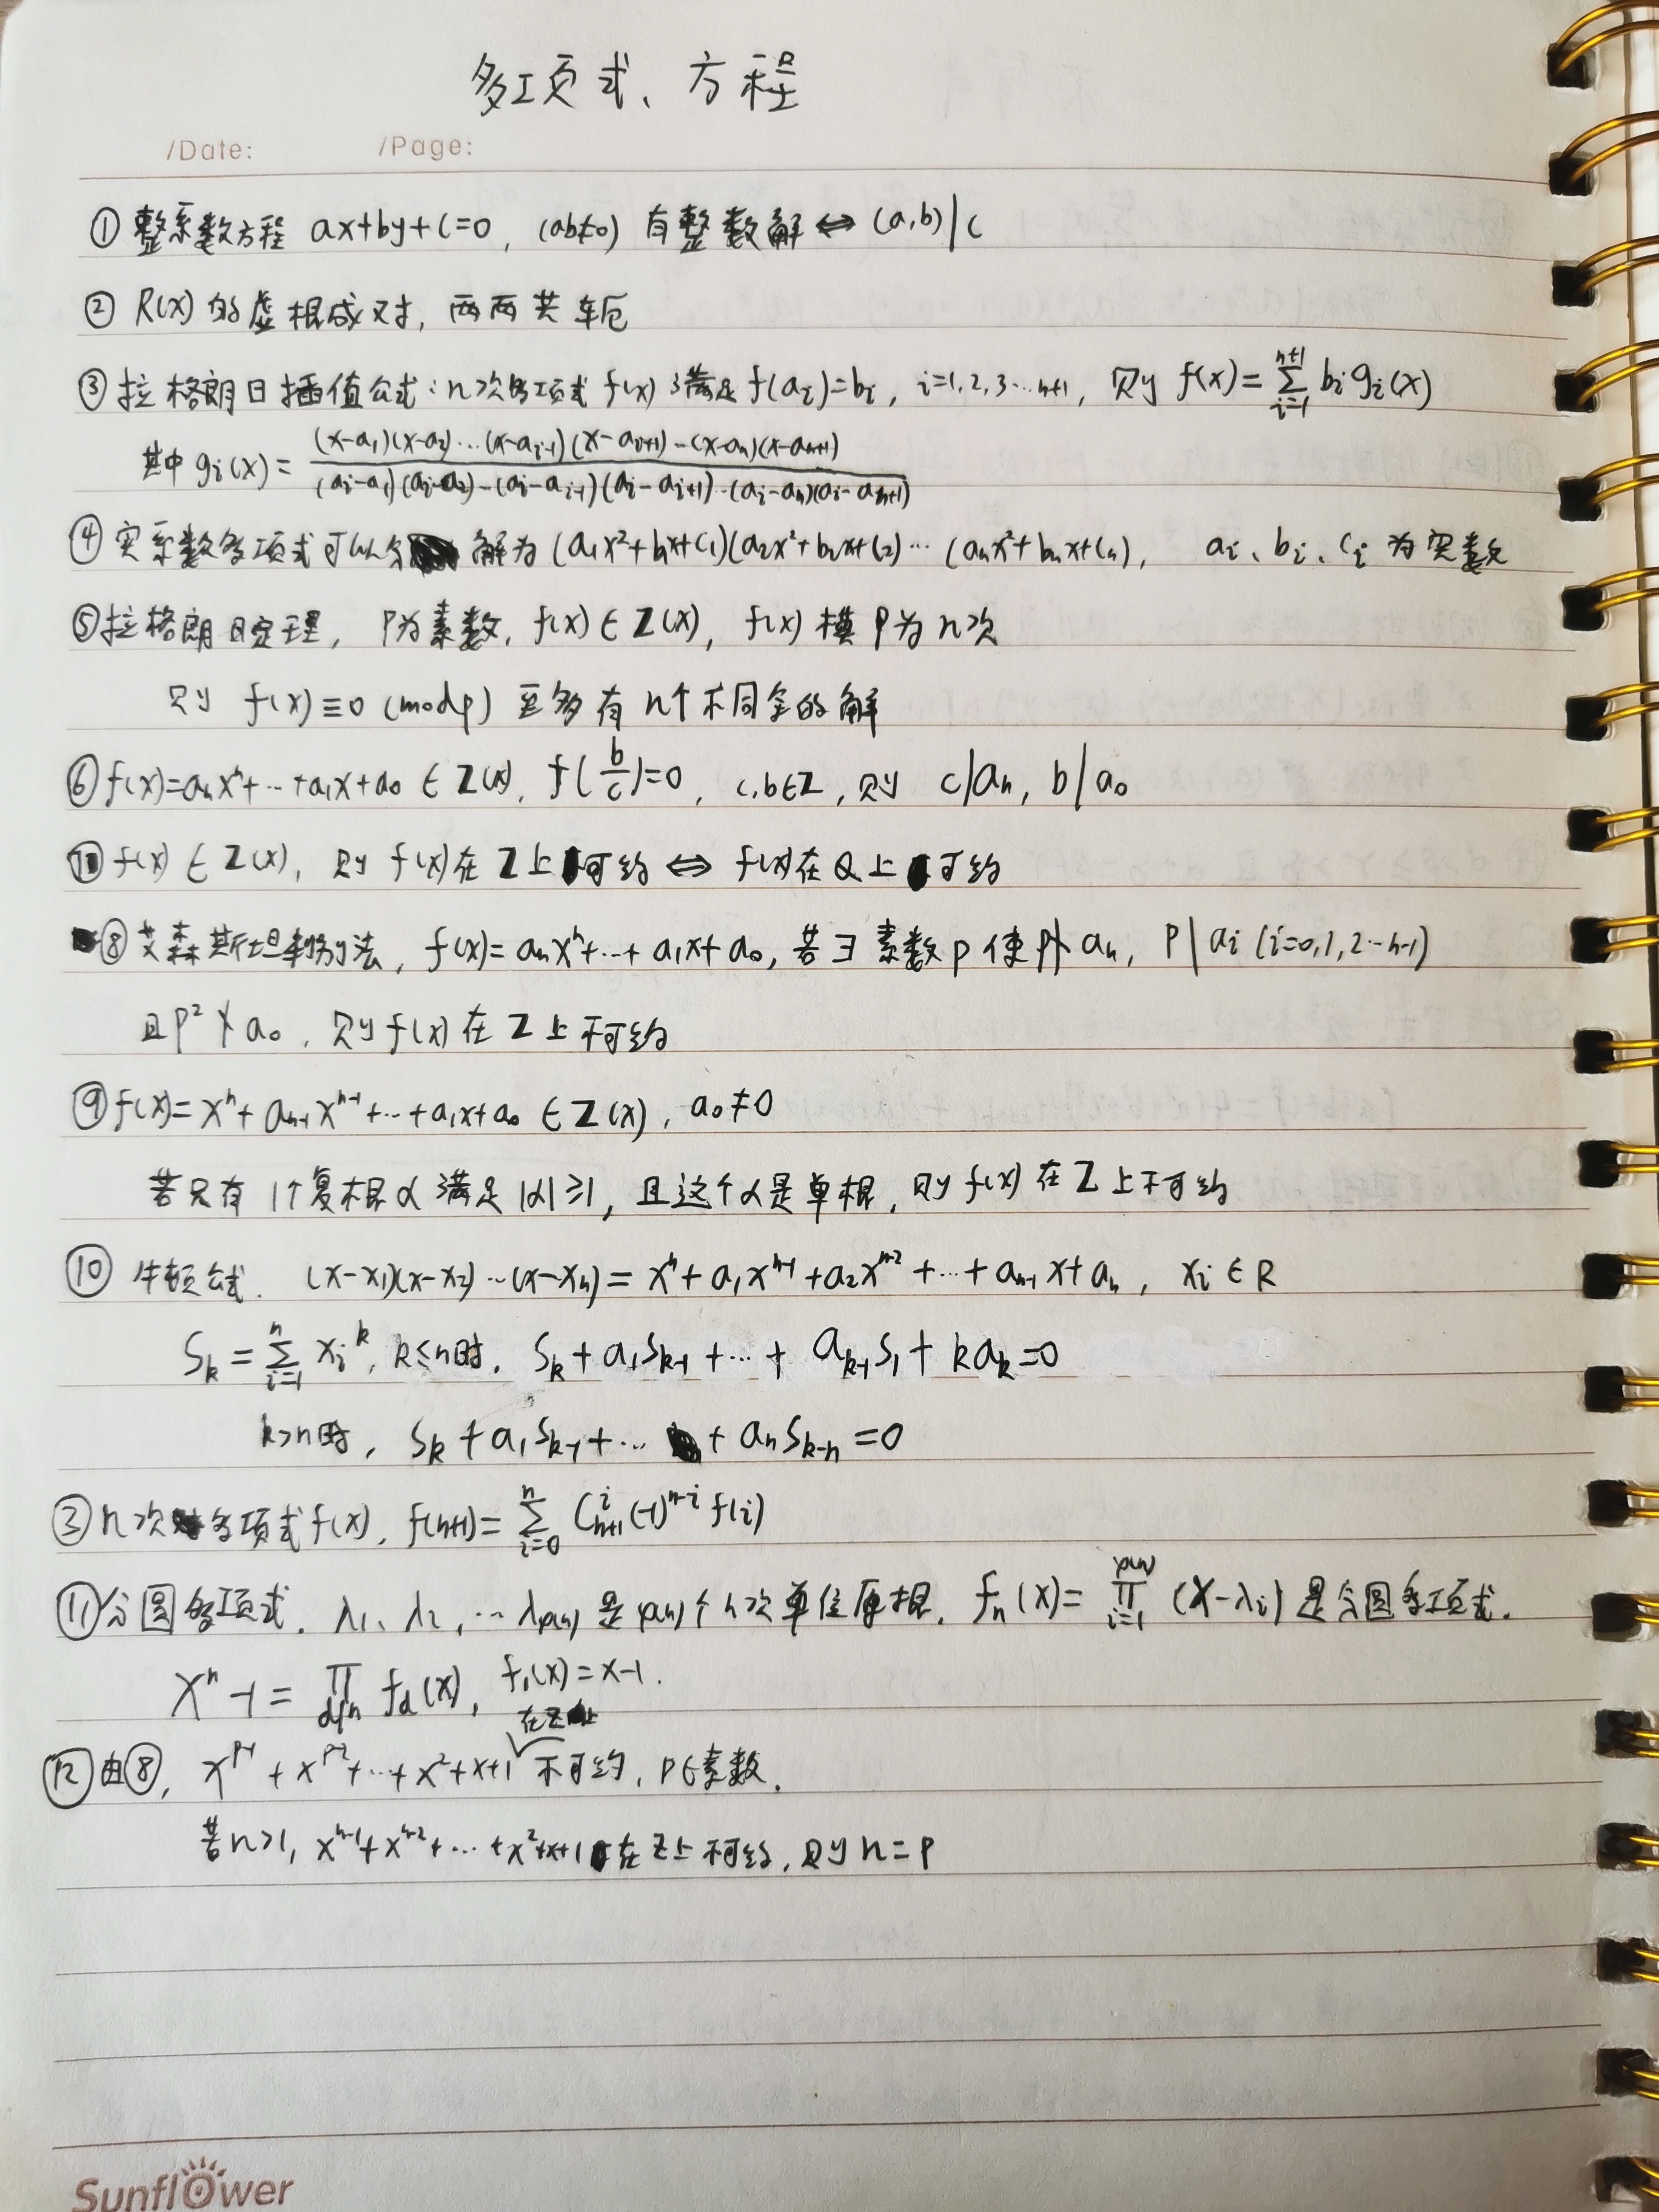 多项式、方程
/Date: /Page:
① 整系数方程 ax+by+c=0, (ab≠0) 有整数解 ⇔ (a,b)|c
② R(x) 的虚根成对, 两两共轭
③ 拉格朗日插值公式: n次多项式 f(x) 满足 f(aᵢ)=bᵢ, i=1,2,3…n+1, 则 f(x)=∑_{i=1}^{n+1} bᵢgᵢ(x)
其中 gᵢ(x)= \frac{(x-a₁)(x-a₂)…(x-a_{i-1})(x-a_{i+1})…(x-aₙ)(x-a_{n+1})}{(aᵢ-a₁)(aᵢ-a₂)…(aᵢ-a_{i-1})(aᵢ-a_{i+1})…(aᵢ-aₙ)(aᵢ-a_{n+1})}
④ 实系数多项式可以分解为 (a₁x²+b₁x+c₁)(a₂x²+b₂x+c₂)…(aₙx²+bₙx+cₙ), aᵢ、bᵢ、cᵢ 为实数
⑤ 拉格朗日定理, p为素数, f(x)∈Z(x), f(x) 模 p 为 n次
则 f(x)≡0 (mod p) 至多有 n个不同余的解
⑥ f(x)=aₙxⁿ+…+a₁x+a₀ ∈ Z(x), f(\frac{b}{c})=0, c,b∈Z, 则 c|aₙ, b|a₀
f(x) ∈ Z(x), 则 f(x)在 Z 上可约 ⇔ f(x)在 Q 上可约
⑧ 艾森斯坦判别法, f(x)=aₙxⁿ+…+a₁x+a₀, 若∃素数 p 使 p∤aₙ, p|aᵢ (i=0,1,2…n-1)
且 p²∤a₀, 则 f(x) 在 Z 上不可约
⑨ f(x)=xⁿ+a_{n-1}x^{n-1}+…+a₁x+a₀ ∈ Z(x), a₀≠0
若只有 1个复根 α 满足 |α|≥1, 且这个 α 是单根, 则 f(x) 在 Z 上不可约
⑩ 牛顿公式. (x-x₁)(x-x₂)…(x-xₙ)=xⁿ+a₁x^{n-1}+a₂x^{n-2}+…+a_{n-1}x+aₙ, xᵢ∈R
S_k=∑_{i=1}^{n} xᵢ^k, k≤n时, S_k+a₁S_{k-1}+…+a_{k-1}S₁+ka_k=0
k>n时, S_k+a₁S_{k-1}+…+aₙS_{k-n}=0
③ n次多项式 f(x), f(n+1)=∑_{i=0}^{n} C_{n+1}^{i}(-1)^{n-i}f(i)
⑪ 分圆多项式. λ₁、λ₂, …λ_{φ(n)} 是 φ(n)个 n次单位原根. fₙ(x)=∏_{i=1}^{φ(n)}(x-λᵢ) 是分圆多项式.
xⁿ-1=∏_{d|n} f_d(x), f₁(x)=x-1.
在Z上
⑫ 由⑧, x^{p-1}+x^{p-2}+…+x²+x+1 不可约, p∈素数.
若 n>1, x^{n-1}+x^{n-2}+…+x²+x+1 在 Z上不可约, 则 n=p
Sunflower